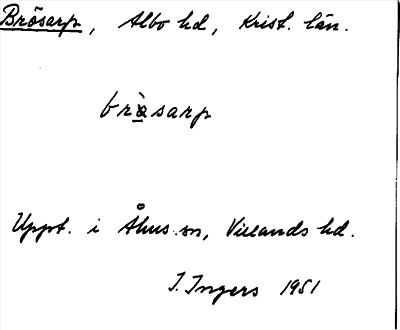 Brösarp, Albo hd, Krist. län.
brö̀sarp
Uppt. i Åhus sn, Villands hd.
I. Ingers 1951